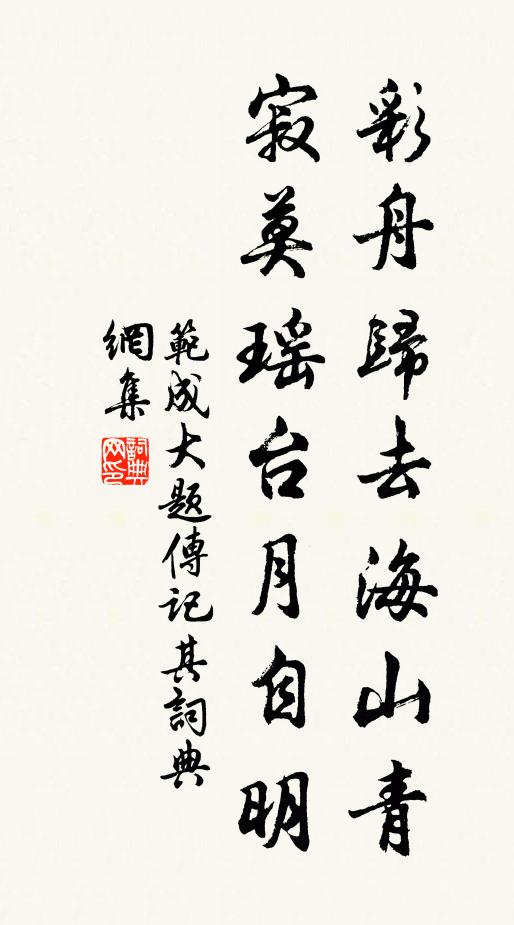 彩舟歸去海山青
寂莫瑶台月自明
範成大题傳記其詞典
網集
詞典网印